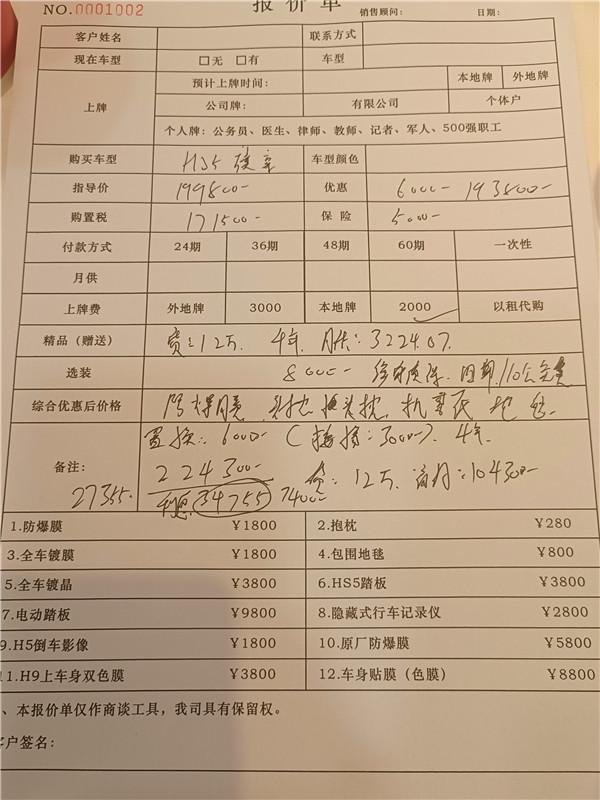 NO.0001002 报价单 销售顾问: 日期:
客户姓名 联系方式
现在车型 □无 □有 车型
上牌 预计上牌时间: 本地牌 外地牌
公司牌: 有限公司 个体户
个人牌: 公务员、医生、律师、教师、记者、军人、500强职工
购买车型 HS5 车型颜色
指导价 199800- 优惠 6000- 193800-
购置税 171500- 保险 5000-
付款方式 24期 36期 48期 60期 一次性
月供
上牌费 外地牌 3000 本地牌 2000 以租代购
精品(赠送) 贷:12万. 4年 月供:3224.07.
选装 8000-
综合优惠后价格 防爆膜
置换:6000- ( :3000-). 4年.
备注: 224300- 贷:12万. 首付:104300-
27355. 34755 7400
1.防爆膜 ¥1800 2.抱枕 ¥280
3.全车镀膜 ¥1800 4.包围地毯 ¥800
5.全车镀晶 ¥3800 6.HS5踏板 ¥3800
7.电动踏板 ¥9800 8.隐藏式行车记录仪 ¥2800
9.H5倒车影像 ¥1800 10.原厂防爆膜 ¥5800
11.H9上车身双色膜 ¥3800 12.车身贴膜(色膜) ¥8800
、本报价单仅作商谈工具,我司具有保留权。
客户签名: